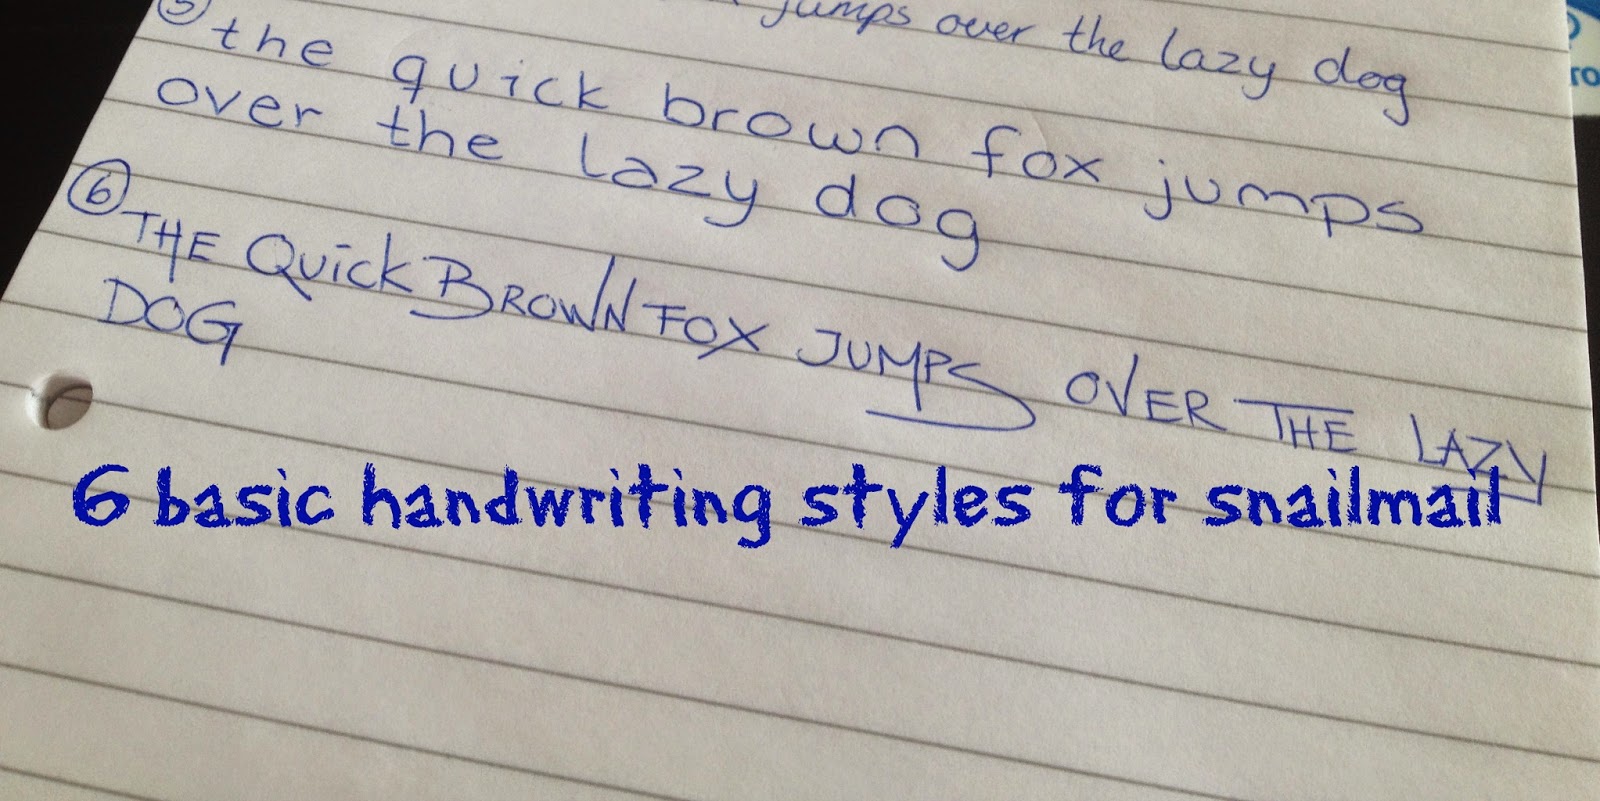 jumps over the lazy dog
5 the quick brown fox jumps
over the lazy dog
6 THE QUicK BROWN FOX JUMPS OVER THE LAZY
DOG
6 basic handwriting styles for snailmail